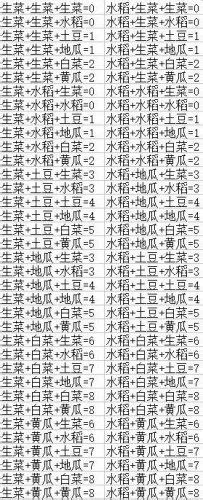 生菜+生菜+生菜=0 水稻+生菜+生菜=0
生菜+生菜+水稻=0 水稻+生菜+水稻=0
生菜+生菜+土豆=1 水稻+生菜+土豆=1
生菜+生菜+地瓜=1 水稻+生菜+地瓜=1
生菜+生菜+白菜=2 水稻+生菜+白菜=2
生菜+生菜+黄瓜=2 水稻+生菜+黄瓜=2
生菜+水稻+生菜=0 水稻+水稻+生菜=0
生菜+水稻+水稻=0 水稻+水稻+水稻=0
生菜+水稻+土豆=1 水稻+水稻+土豆=1
生菜+水稻+地瓜=1 水稻+水稻+地瓜=1
生菜+水稻+白菜=2 水稻+水稻+白菜=2
生菜+水稻+黄瓜=2 水稻+水稻+黄瓜=2
生菜+土豆+生菜=3 水稻+地瓜+生菜=3
生菜+土豆+水稻=3 水稻+地瓜+水稻=3
生菜+土豆+土豆=4 水稻+地瓜+土豆=4
生菜+土豆+地瓜=4 水稻+地瓜+地瓜=4
生菜+土豆+白菜=5 水稻+地瓜+白菜=5
生菜+土豆+黄瓜=5 水稻+地瓜+黄瓜=5
生菜+地瓜+生菜=3 水稻+土豆+生菜=3
生菜+地瓜+水稻=3 水稻+土豆+水稻=3
生菜+地瓜+土豆=4 水稻+土豆+土豆=4
生菜+地瓜+地瓜=4 水稻+土豆+地瓜=4
生菜+地瓜+白菜=5 水稻+土豆+白菜=5
生菜+地瓜+黄瓜=5 水稻+土豆+黄瓜=5
生菜+白菜+生菜=6 水稻+白菜+生菜=6
生菜+白菜+水稻=6 水稻+白菜+水稻=6
生菜+白菜+土豆=7 水稻+白菜+土豆=7
生菜+白菜+地瓜=7 水稻+白菜+地瓜=7
生菜+白菜+白菜=8 水稻+白菜+白菜=8
生菜+白菜+黄瓜=8 水稻+白菜+黄瓜=8
生菜+黄瓜+生菜=6 水稻+黄瓜+生菜=6
生菜+黄瓜+水稻=6 水稻+黄瓜+水稻=6
生菜+黄瓜+土豆=7 水稻+黄瓜+土豆=7
生菜+黄瓜+地瓜=7 水稻+黄瓜+地瓜=7
生菜+黄瓜+白菜=8 水稻+黄瓜+白菜=8
生菜+黄瓜+黄瓜=8 水稻+黄瓜+黄瓜=8